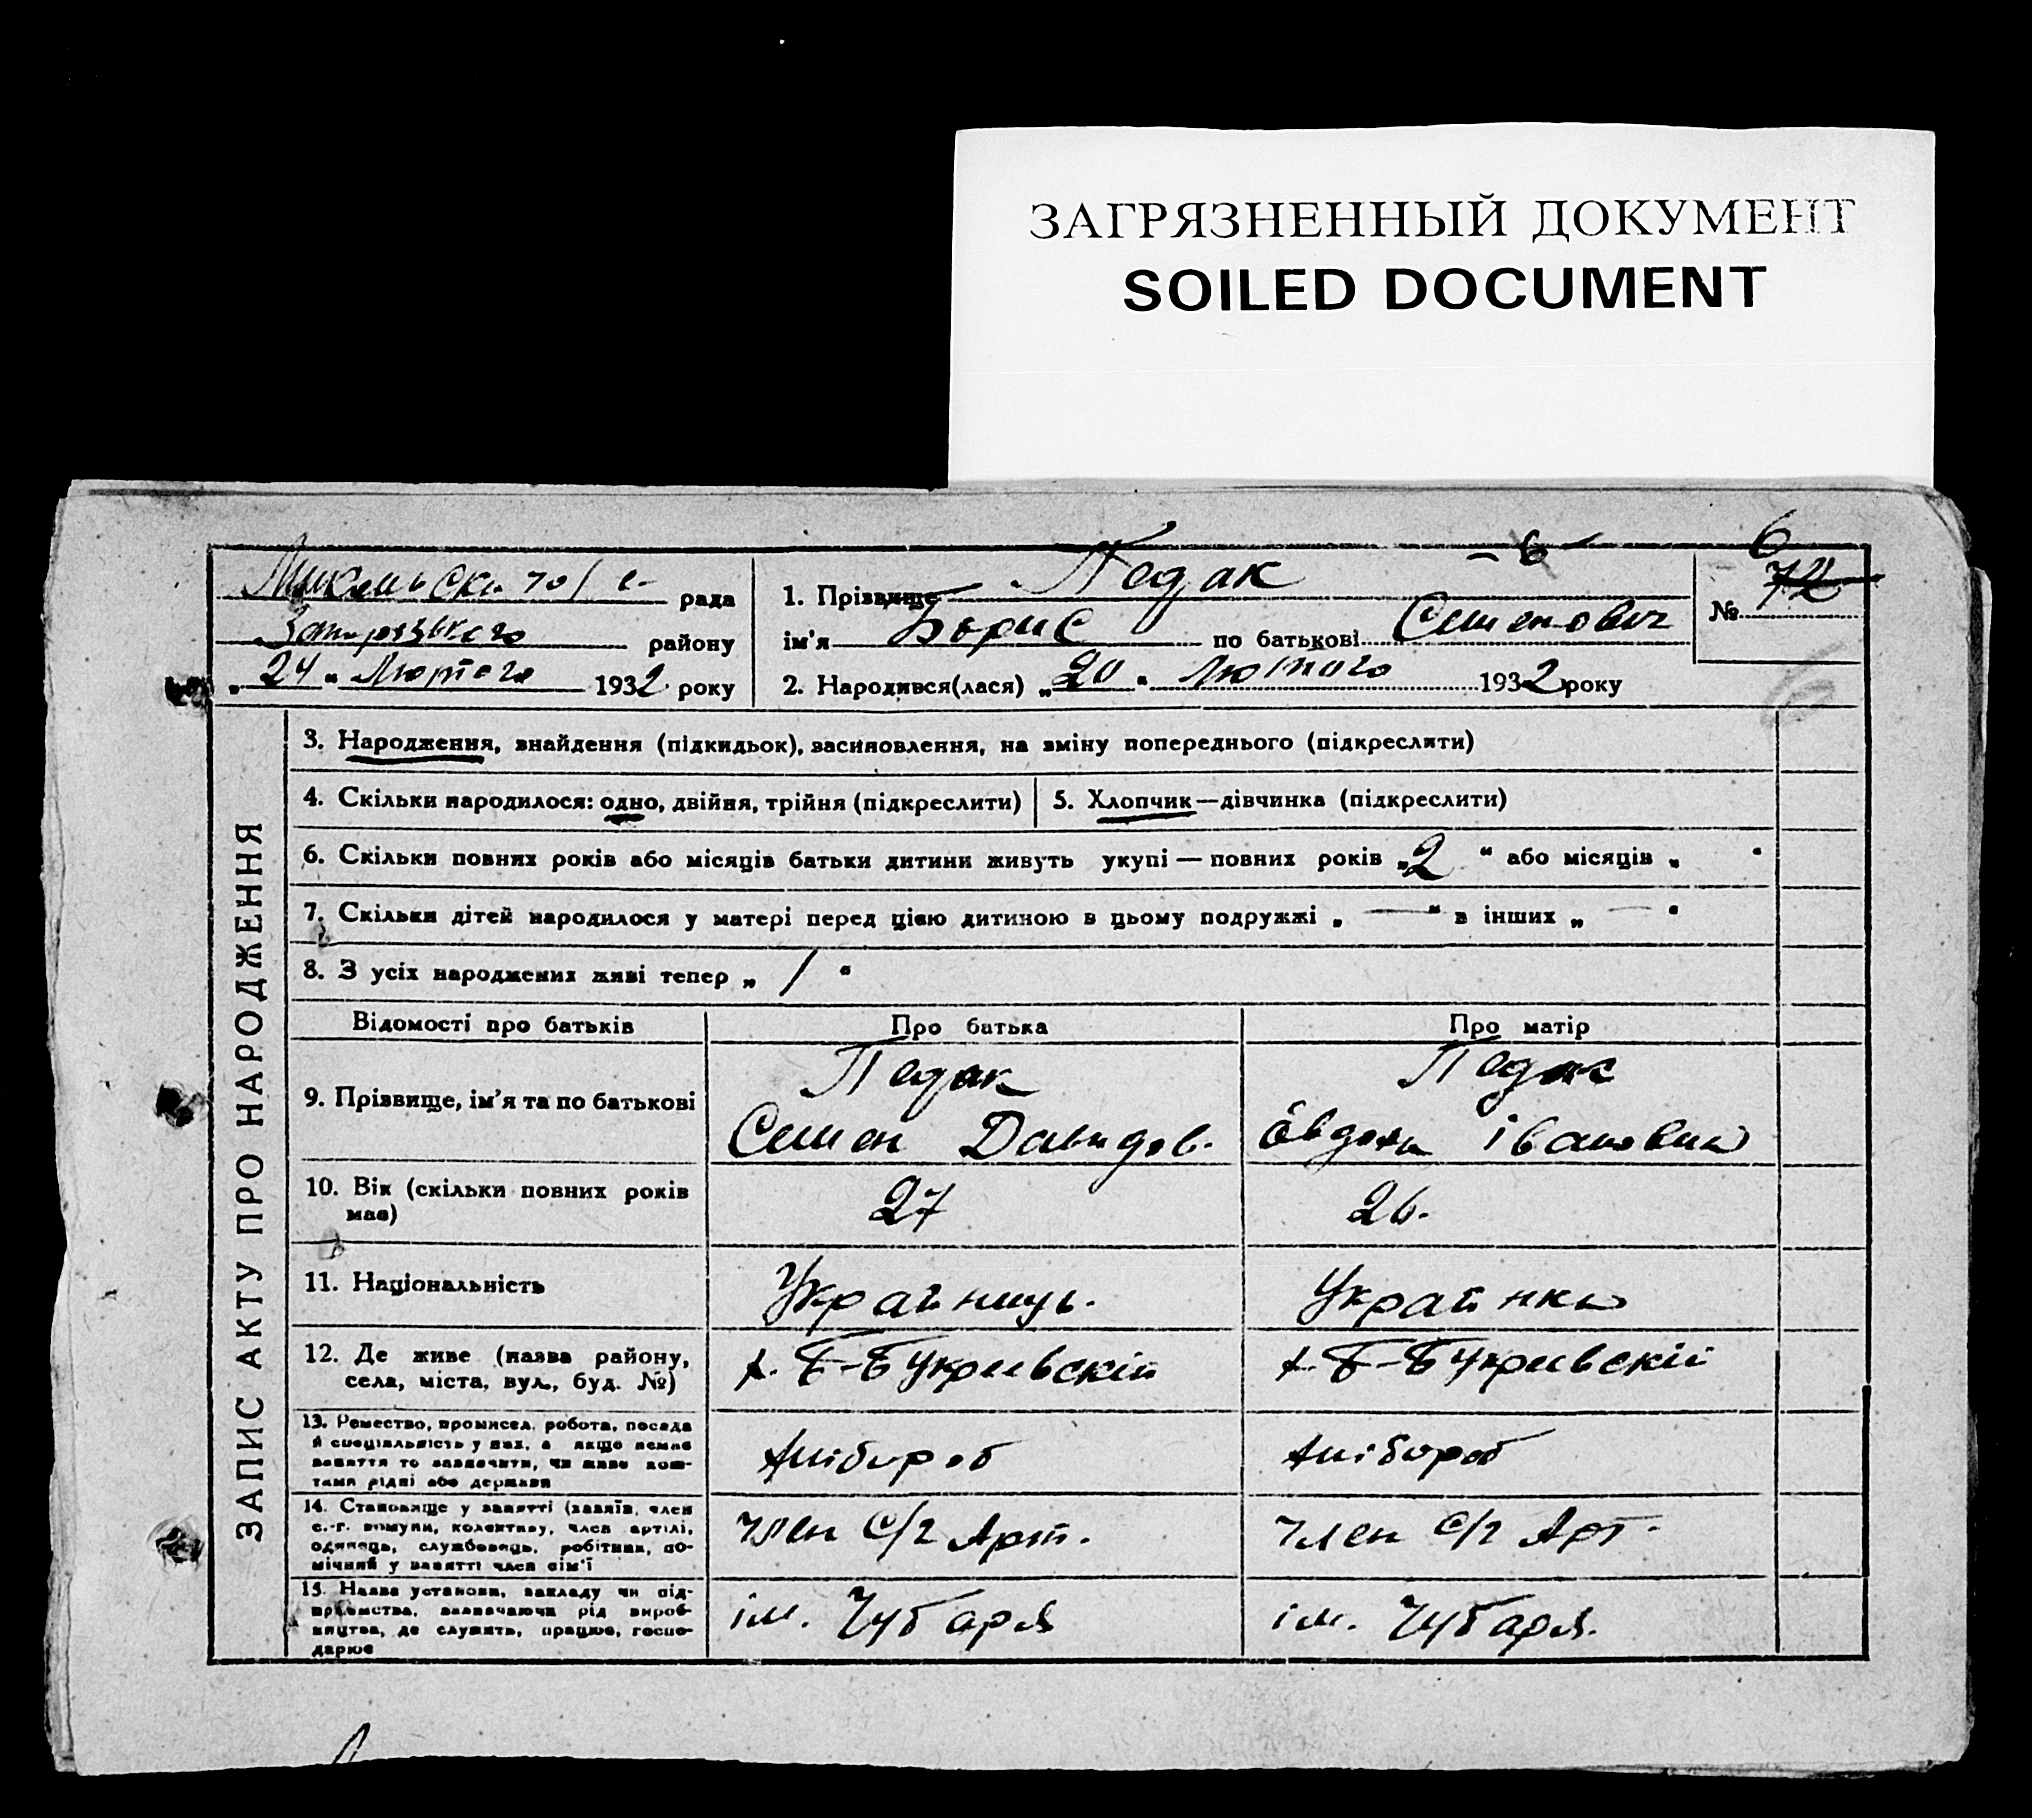 ЗАГРЯЗНЕННЫЙ ДОКУМЕНТ
SOILED DOCUMENT
рада
Запорізького району
„24“ Лютого 1932 року
1. Прізвище Педак
ім'я Борис по батькові Семенович
2. Народився(лася) „20“ Лютого 1932 року
– 6 –
6
№ 72
ЗАПИС АКТУ ПРО НАРОДЖЕННЯ
3. Народження, знайдення (підкидьок), засиновлення, на зміну попереднього (підкреслити)
4. Скільки народилося: одно, двійня, трійня (підкреслити)
5. Хлопчик—дівчинка (підкреслити)
6. Скільки повних років або місяців батьки дитини живуть укупі — повних років „2“ або місяців „ “
7. Скільки дітей народилося у матері перед цією дитиною в цьому подружжі „—“ в інших „—“
8. З усіх народжених живі тепер „1“
Відомості про батьків
Про батька
Про матір
9. Прізвище, ім'я та по батькові
Педак
Семен Давидов.
Педак
Івановна
10. Вік (скільки повних років
має)
27
26.
11. Національність
Українець.
Українка
12. Де живе (назва району,
села, міста, вул., буд. №)
13. Ремество, промисел, робота, посада
й спеціальність у них, а якщо немає
заняття то зазначити, чи живе кош-
тами рідні або держави
Хлібороб
Хлібороб
14. Становище у занятті (хазяїн, член
с.-г. комуни, колективу, член артілі,
одинець, службовець, робітник, по-
мічний у занятті член сім'ї
член С/г Арт.
член С/г Арт.
15. Назва установи, закладу чи під-
приємства, зазначаючи рід вироб-
ництва, де служить, працює, госпо-
дарює
ім. Чубаря
ім. Чубаря.